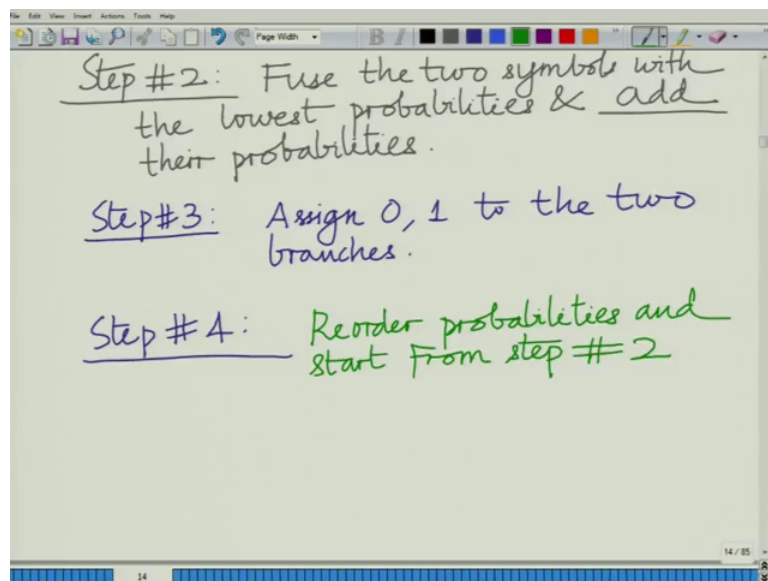 File Edit View Insert Actions Tools Help
Page Width
B I
Step #2: Fuse the two symbols with
the lowest probabilities & add
their probabilities.
Step#3: Assign 0, 1 to the two
branches.
Step #4: Reorder probabilities and
start From step #2
14 / 85
14